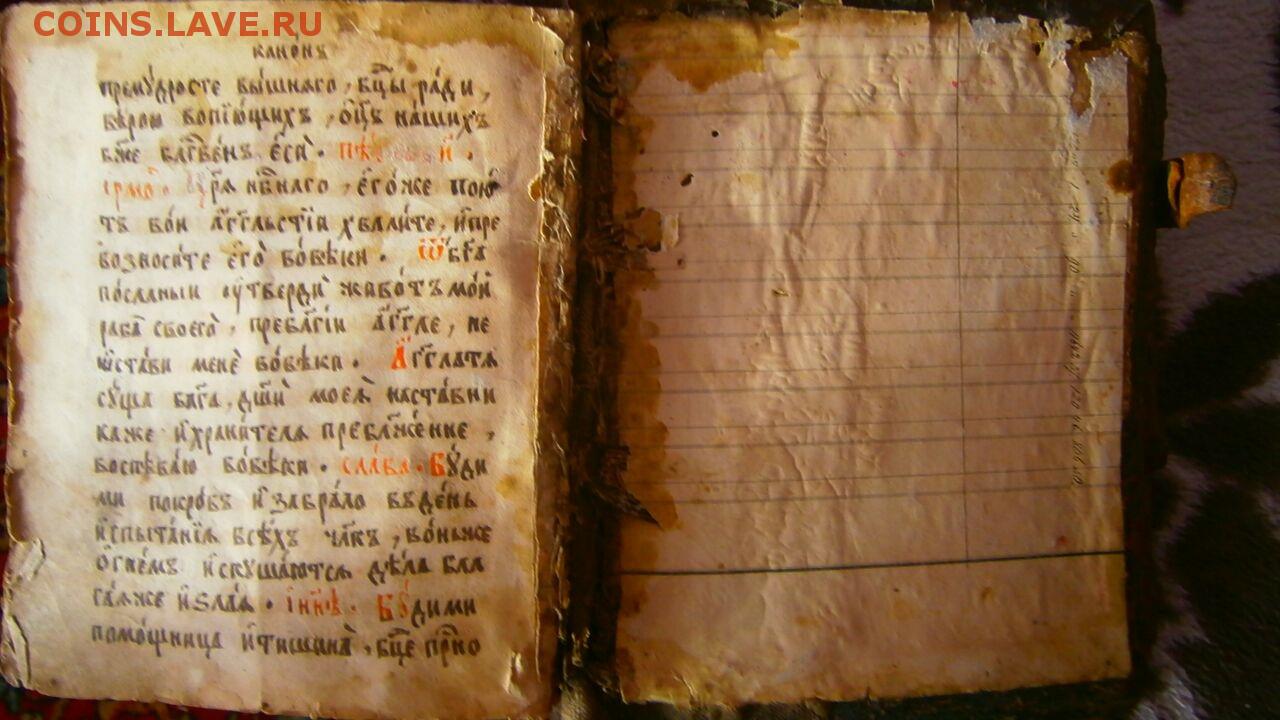 COINS.LAVE.RU
канонъ
премꙋ́дросте вы́шнѧго, бц҃ы ра́ди,
вѣ́рою вопїю́щихъ, ѻц҃ъ на́шихъ
бж҃е блгⷭ҇ве́нъ є҆сѝ.
і҆рмо́.
цр҃ѧ нбⷭ҇наго, є҆го́же пою́
тъ во́и а҆́гг҃льстїи хвали́те, и҆пре
возноси́те є҆го̀ во́вѣки. Ѿ бг҃а
по́сланыи ᲂу҆твердѝ живо́тъ мо́й
раба̀ своегѡ̀, пребл҃гі́и а҆́гг҃ле, не
ѿста́ви менѐ во́вѣки. А҆́гг҃ла тѧ
сꙋ́ща бл҃га, дш҃и моеѧ̀ наста́вни
ка же и҆ храни́телѧ пребл҃же́нне,
воспѣва́ю во́вѣки. сла́ва. Бꙋ́ди
ми покро́въ и҆ забра́ло въ де́нь
и҆спыта́нїѧ всѣ́хъ чл҃къ, во́ньже
ѻ҆гне́мъ и҆скꙋша́ютсѧ дѣ́ла бла
га́ѧ же и҆ ѕла́ѧ. и҆ нн҃ѣ. Бꙋ́ди ми
помо́щница и҆ тишина̀, бц҃е прⷭ҇но